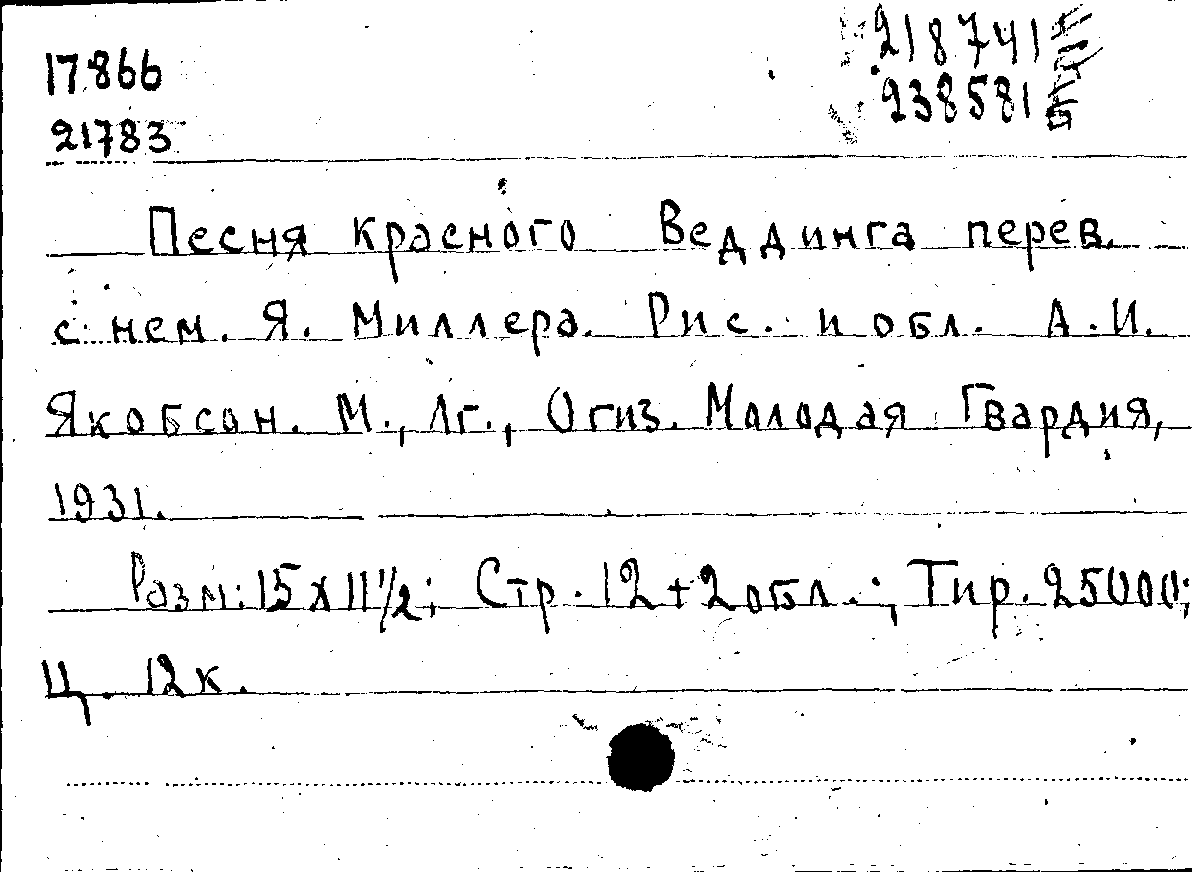 17.866
21783
218741 Б
238581 Б
Песня красного Веддинга перев.
с нем. Я. Миллера. Рис. и обл. А.И.
Якобсон. М., Лг., Огиз. Молодая Гвардия,
1931.
Разм: 15 x 11 1/2; Стр. 12 + 2 обл.; Тир. 25000;
Ц. 12 к.